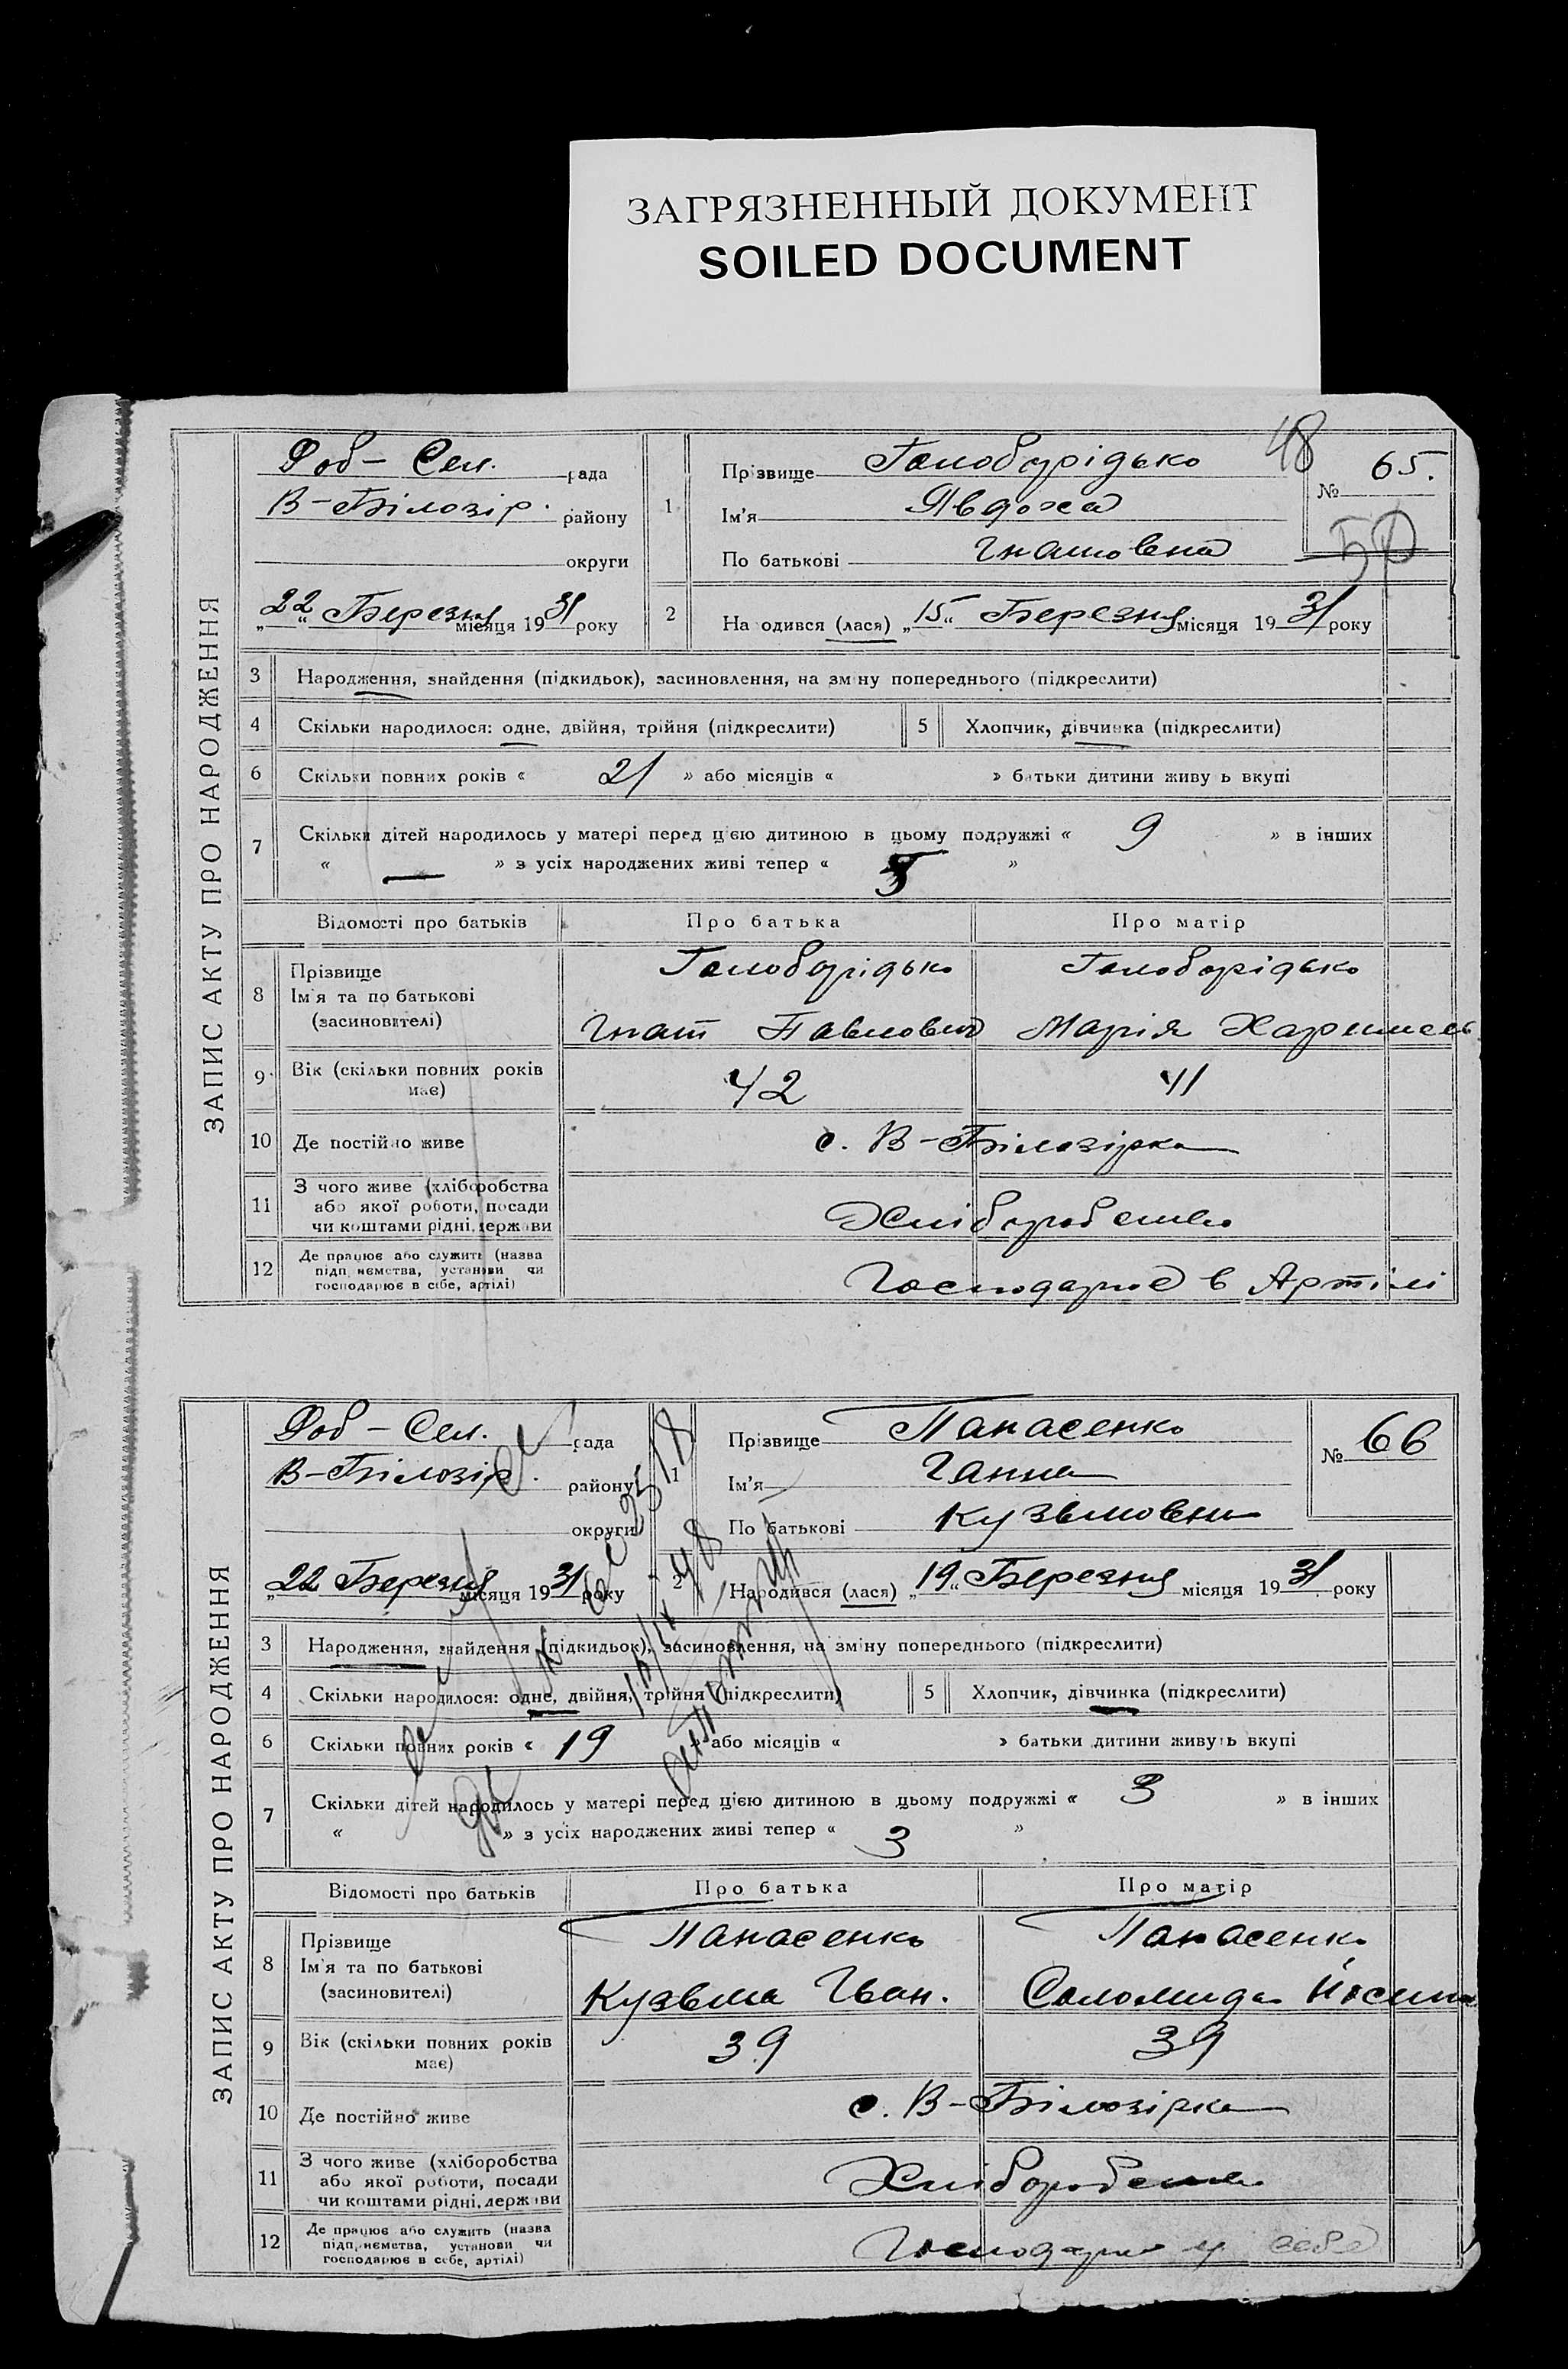 ЗАГРЯЗНЕННЫЙ ДОКУМЕНТ
SOILED DOCUMENT
ЗАПИС АКТУ ПРО НАРОДЖЕННЯ
Роб - Сел. рада
В-Білозір. району
округи
„22“ Березня місяця 1931 року
1
Прізвище Голоборідько
Ім'я Явдоха
По батькові Гнатовна
48
№ 65.
2 На одився (лася) „15“ Березня місяця 1931 року
3 Народження, знайдення (підкидьок), засиновлення, на зміну попереднього (підкреслити)
4 Скільки народилося: одне, двійня, трійня (підкреслити) 5 Хлопчик, дівчинка (підкреслити)
6 Скільки повних років « 21 » або місяців « » батьки дитини живу ь вкупі
7 Скільки дітей народилось у матері перед цією дитиною в цьому подружжі « 9 » в інших
« — » з усіх народжених живі тепер « »
Відомості про батьків Про батька Про матір
8 Прізвище Голоборідько Голоборідько
Ім'я та по батькові
(засиновителі) Гнат Павлович Марія
9 Вік (скільки повних років має) 42 41
10 Де постійно живе с. В-Білозірка
11 З чого живе (хліборобства
або якої роботи, посади
чи коштами рідні, держави Хліборобство
12 Де працює або служить (назва
підприємства, установи чи
господарює в себе, артілі) Господарює в Артілі
ЗАПИС АКТУ ПРО НАРОДЖЕННЯ
Роб - Сел. рада
В-Білозір. району
округи
„22 Березня місяця 1931 року
1
Прізвище Панасенко
Ім'я Ганна
По батькові Кузьмовна
№ 66
2 Народився (лася) „19“ Березня місяця 1931 року
3 Народження, знайдення (підкидьок), засиновлення, на зміну попереднього (підкреслити)
4 Скільки народилося: одне, двійня, трійня (підкреслити) 5 Хлопчик, дівчинка (підкреслити)
6 Скільки повних років « 19 » або місяців « » батьки дитини живуть вкупі
7 Скільки дітей народилось у матері перед цією дитиною в цьому подружжі « 3 » в інших
« » з усіх народжених живі тепер « 3 »
Відомості про батьків Про батька Про матір
8 Прізвище Панасенко Панасенко
Ім'я та по батькові
(засиновителі) Кузьма Іван. Соломида
9 Вік (скільки повних років має) 39 39
10 Де постійно живе с. В-Білозірка
11 З чого живе (хліборобства
або якої роботи, посади
чи коштами рідні, держави Хліборобство
12 Де працює або служить (назва
підприємства, установи чи
господарює в себе, артілі) Господарює у себе